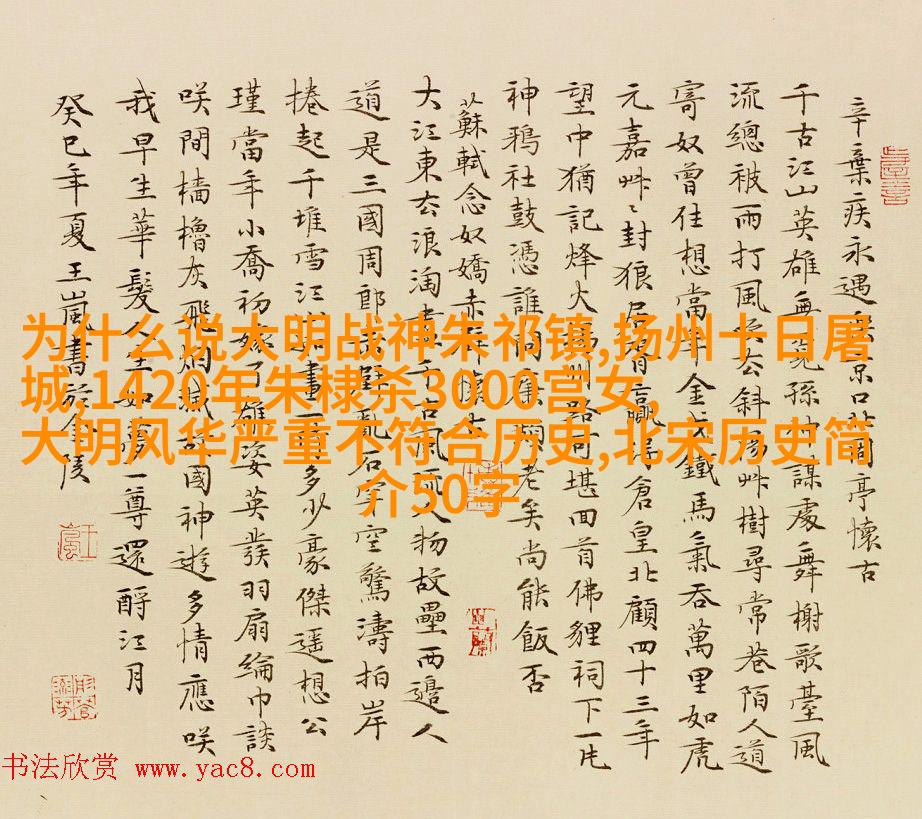 辛棄疾永遇樂京口北固亭懷古
千古江山英雄無覓孫仲謀處舞榭歌臺風
流總被雨打風吹去斜陽艸樹尋常巷陌人道
寄奴曾住想當年金戈鐵馬氣吞萬里如虎
元嘉艸〻封狼居胥贏得倉皇北顧四十三年
望中猶記烽火揚州路可堪回首佛貍祠下一片
神鴉社鼓憑誰問廉頗老矣尚能飯否
蘇軾念奴嬌赤壁懷古
大江東去浪淘盡千古風流人物故壘西邊人
道是三國周郎赤壁亂石穿空驚濤拍岸
捲起千堆雪江山如畫一時多少豪傑遥想公
瑾當年小喬初嫁了雄姿英發羽扇綸巾談
咲間檣櫓灰飛烟滅故國神遊多情應咲
我早生華髮人生如夢一尊還酹江月
癸巳年夏王嵐書於金陵
为什么说大明战神朱祁镇,扬州十日屠
城,1420年朱棣杀3000宫女,
大明风华严重不符合历史,北宋历史简
介50字
书法欣赏 www.yac8.com